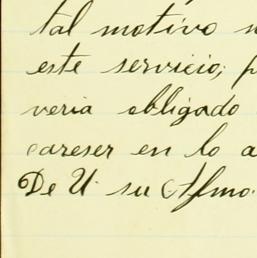 tal motivo
este servicio;
veria obligado
careser en lo a
De U. su Afmo.